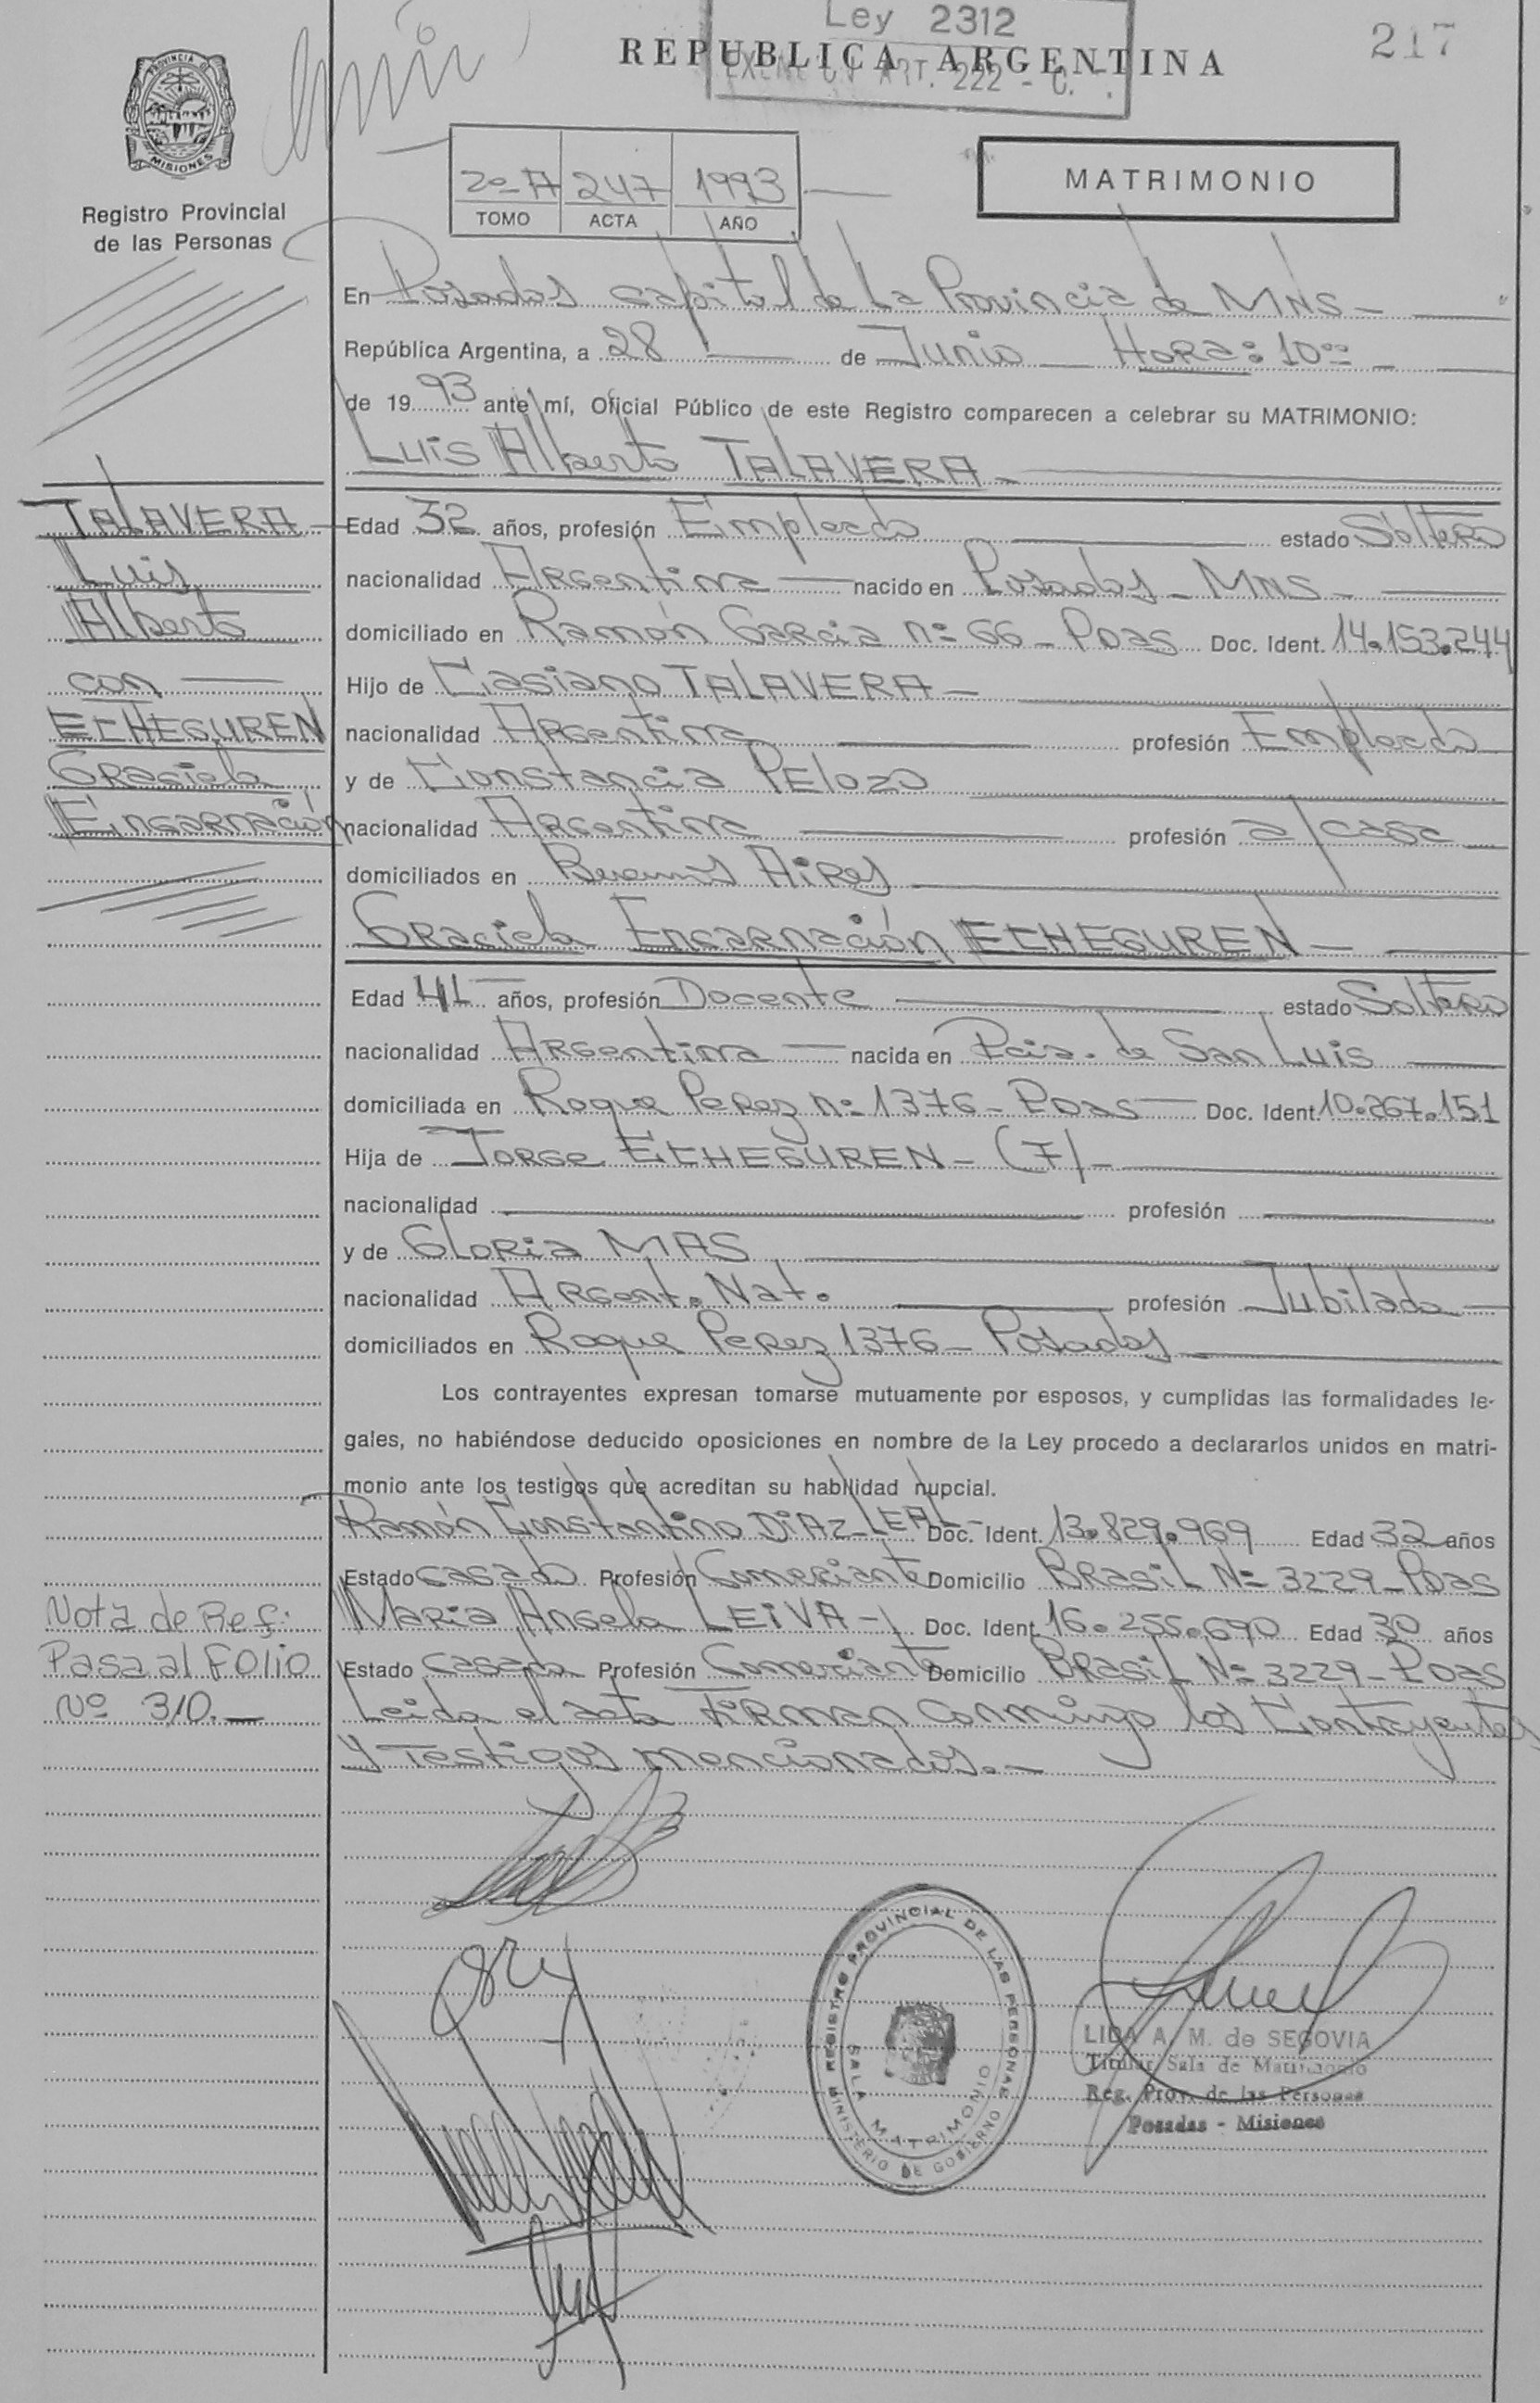 Ley 2312
REPUBLICA ARGENTINA
ART. 222 - C.
217
PROVINCIA D
MISIONES
Registro Provincial
de las Personas
2º A 247 1993
TOMO ACTA AÑO
MATRIMONIO
En Posadas capital de La Provincia de MNS -
República Argentina, a 28 de Junio Hora: 10ºº -
de 19 93 ante mí, Oficial Público de este Registro comparecen a celebrar su MATRIMONIO:
Luis Alberto TALAVERA -
TALAVERA -
Luis
Alberto
con
ECHEGUREN
Graciela
Encarnación
Edad 32 años, profesión Empleado estado Soltero
nacionalidad Argentina nacido en Posadas - MNS -
domiciliado en Ramón Garcia nº 66 - Pdas Doc. Ident. 14.153.244
Hijo de Casiano TALAVERA -
nacionalidad Argentina profesión Empleado
y de Constancia PELOZO
nacionalidad Argentina profesión a/casa
domiciliados en Buenos Aires
Graciela Encarnación ECHEGUREN -
Edad 41 años, profesión Docente estado Soltera
nacionalidad Argentina nacida en Pcia. de San Luis
domiciliada en Roque Perez nº 1376 - Pdas Doc. Ident. 10.267.151
Hija de Jorge ECHEGUREN - (F) -
nacionalidad profesión
y de Gloria MAS
nacionalidad Argent. Nat. profesión Jubilada
domiciliados en Roque Perez 1376 - Posadas
Los contrayentes expresan tomarse mutuamente por esposos, y cumplidas las formalidades le-
gales, no habiéndose deducido oposiciones en nombre de la Ley procedo a declararlos unidos en matri-
monio ante los testigos que acreditan su habilidad nupcial.
Ramón Constantino DIAZ LEAL - Doc. Ident. 13.829.969 Edad 32 años
Estado casado Profesión Comerciante Domicilio BRASIL Nº 3229 - Pdas
Maria Angela LEIVA - Doc. Ident. 16.255.690 Edad 30 años
Estado casada Profesión Comerciante Domicilio BRASIL Nº 3229 - Pdas
Leida el acta firman conmigo los Contrayentes
y Testigos mencionados. -
Nota de Ref:
Pasa al Folio
Nº 310. -
REGISTRO PROVINCIAL DE LAS PERSONAS
MINISTERIO DE GOBIERNO
SALA MATRIMONIO
LIDA A. M. de SEGOVIA
Titular Sala de Matrimonio
Reg. Prov. de las Personas
Posadas - Misiones